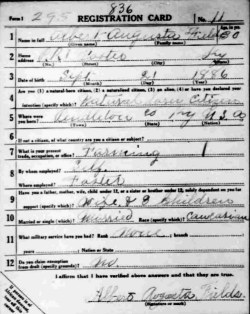 836
Form 1 295 REGISTRATION CARD No. 11
1 Name in full Albert Augusta Fields 30
(Given name) (Family name)
2 Home address
(No.) (Street) (City) (State)
3 Date of birth Sept. 21 1886
(Month) (Day) (Year)
4 Are you (1) a natural-born citizen, (2) a naturalized citizen, (3) an alien, (4) or have you declared your
intention (specify which)? Natural born Citizen
5 Where were you born? Pendleton Co Ky U.S.A
(Town) (State) (Nation)
6 If not a citizen, of what country are you a citizen or subject?
7 What is your present trade, occupation, or office? Farming 1
8 By whom employed?
Where employed?
9 Have you a father, mother, wife, child under 12, or a sister or brother under 12, solely dependent on you for
support (specify which)? Wife & 2 Children
10 Married or single (which)? Married Race (specify which)? Caucasian
11 What military service have you had? Rank None ; branch
years ; Nation or State
12 Do you claim exemption from draft (specify grounds)? No.
I affirm that I have verified above answers and that they are true.
Albert Augusta Fields
(Signature or mark)